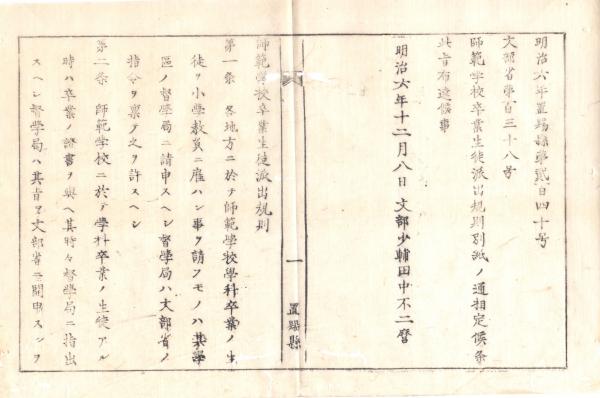 明治六年置賜縣第貳百四十号
文部省第百三十八号
師範学校卒業生徒派出規則別紙ノ通相定候条
此旨布達候事
明治六年十二月八日 文部少輔田中不二麿
一
置賜縣
師範学校卒業生徒派出規則
第一条 各地方ニ於テ師範學校學科卒業ノ生
徒ヲ小学教員ニ雇ハン事ヲ請フモノハ其學
區ノ督學局ニ請申スヘシ督學局ハ文部省ノ
指令ヲ稟テ之ヲ許スヘシ
第二条 師範學校ニ於テ学科卒業ノ生徒アル
時ハ卒業ノ證書ヲ與ヘ其時々督學局ニ指出
スヘシ督學局ハ其旨ヲ文部省ニ開申スヘシヲ